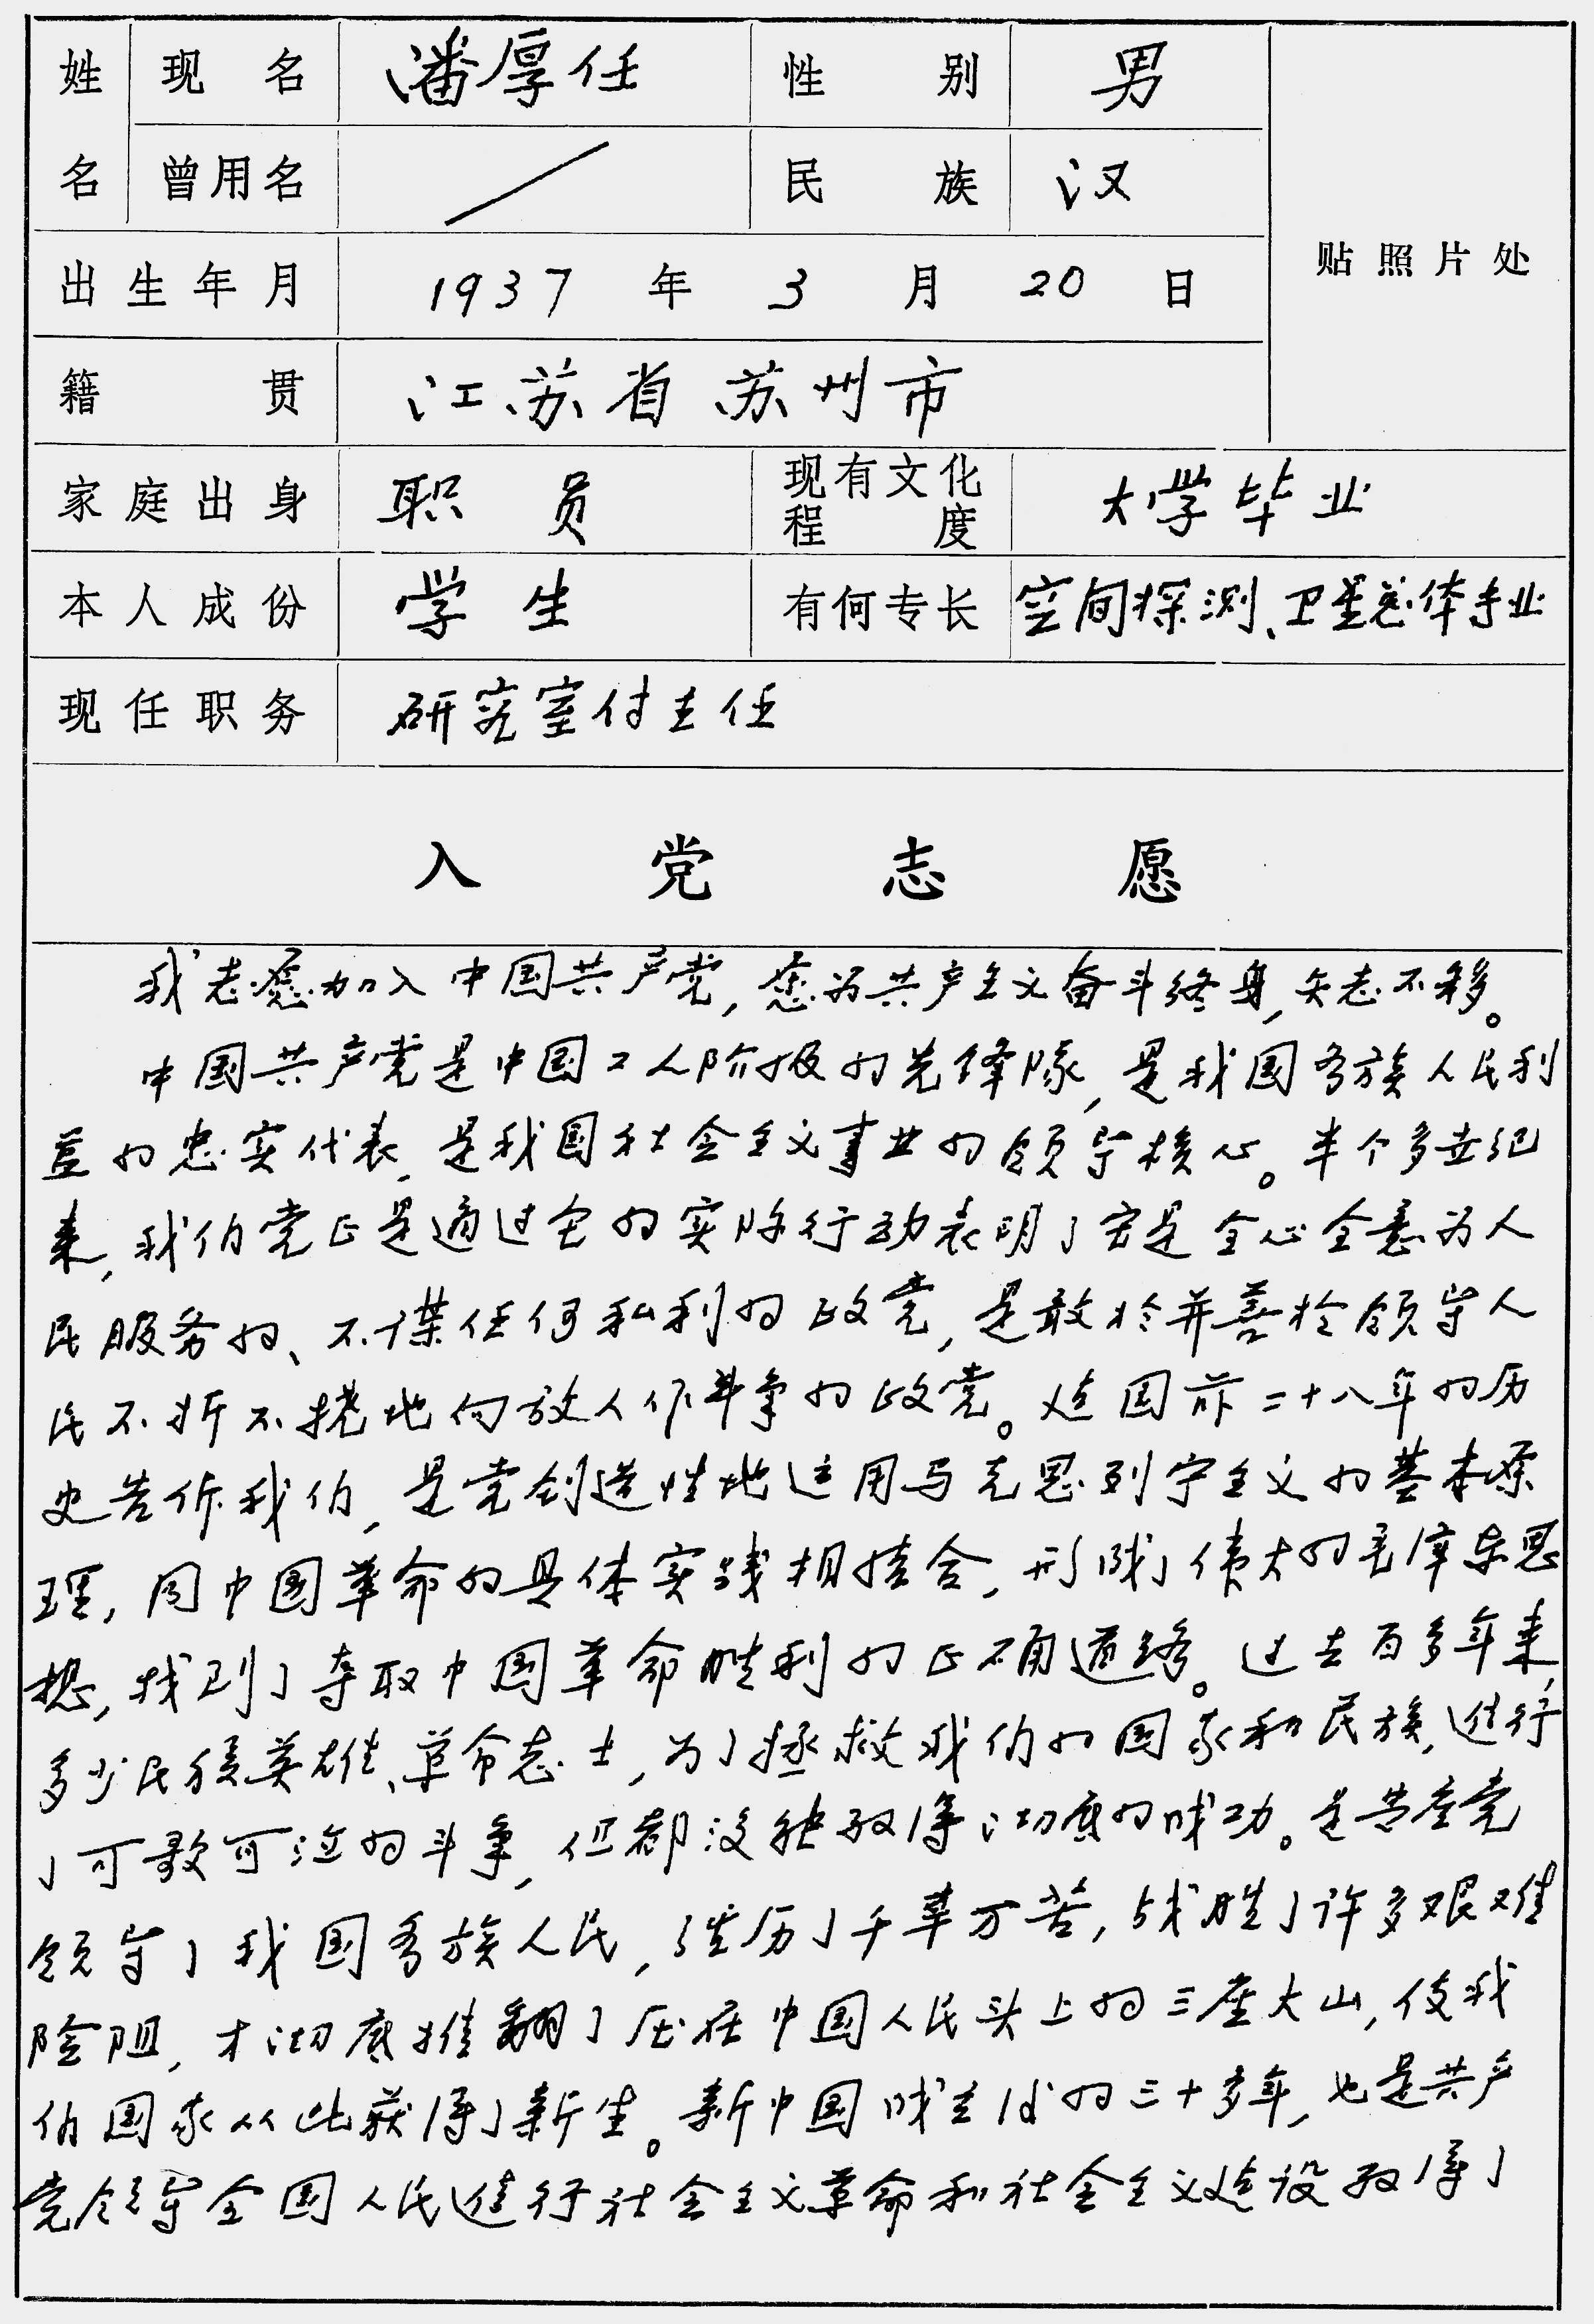 姓名 现名 潘厚任 性别 男
曾用名 / 民族 汉
贴照片处
出生年月 1937年3月20日
籍贯 江苏省苏州市
家庭出身 职员 现有文化程度 大学毕业
本人成份 学生 有何专长 空间探测、卫星总体专业
现任职务 研究室付主任
入党志愿
我志愿加入中国共产党,愿为共产主义奋斗终身,矢志不移。
中国共产党是中国工人阶级的先锋队,是我国各族人民利
益的忠实代表,是我国社会主义事业的领导核心。半个多世纪
来,我们党正是通过它的实际行动表明了它是全心全意为人
民服务的、不谋任何私利的政党,是敢于并善于领导人
民不折不挠地向敌人作斗争的政党。建国前二十八年的历
史告诉我们,是党创造性地运用马克思列宁主义的基本原
理,同中国革命的具体实践相结合,形成了伟大的毛泽东思
想,找到了夺取中国革命胜利的正确道路。过去百多年来,
多少民族英雄、革命志士,为了拯救我们的国家和民族,进行
了可歌可泣的斗争,但都没能取得彻底的成功。是共产党
领导了我国各族人民,经历了千辛万苦,战胜了许多艰难
险阻,才彻底推翻了压在中国人民头上的三座大山,使我
们国家从此获得了新生。新中国成立后的三十多年,也是共产
党领导全国人民进行社会主义革命和社会主义建设取得了